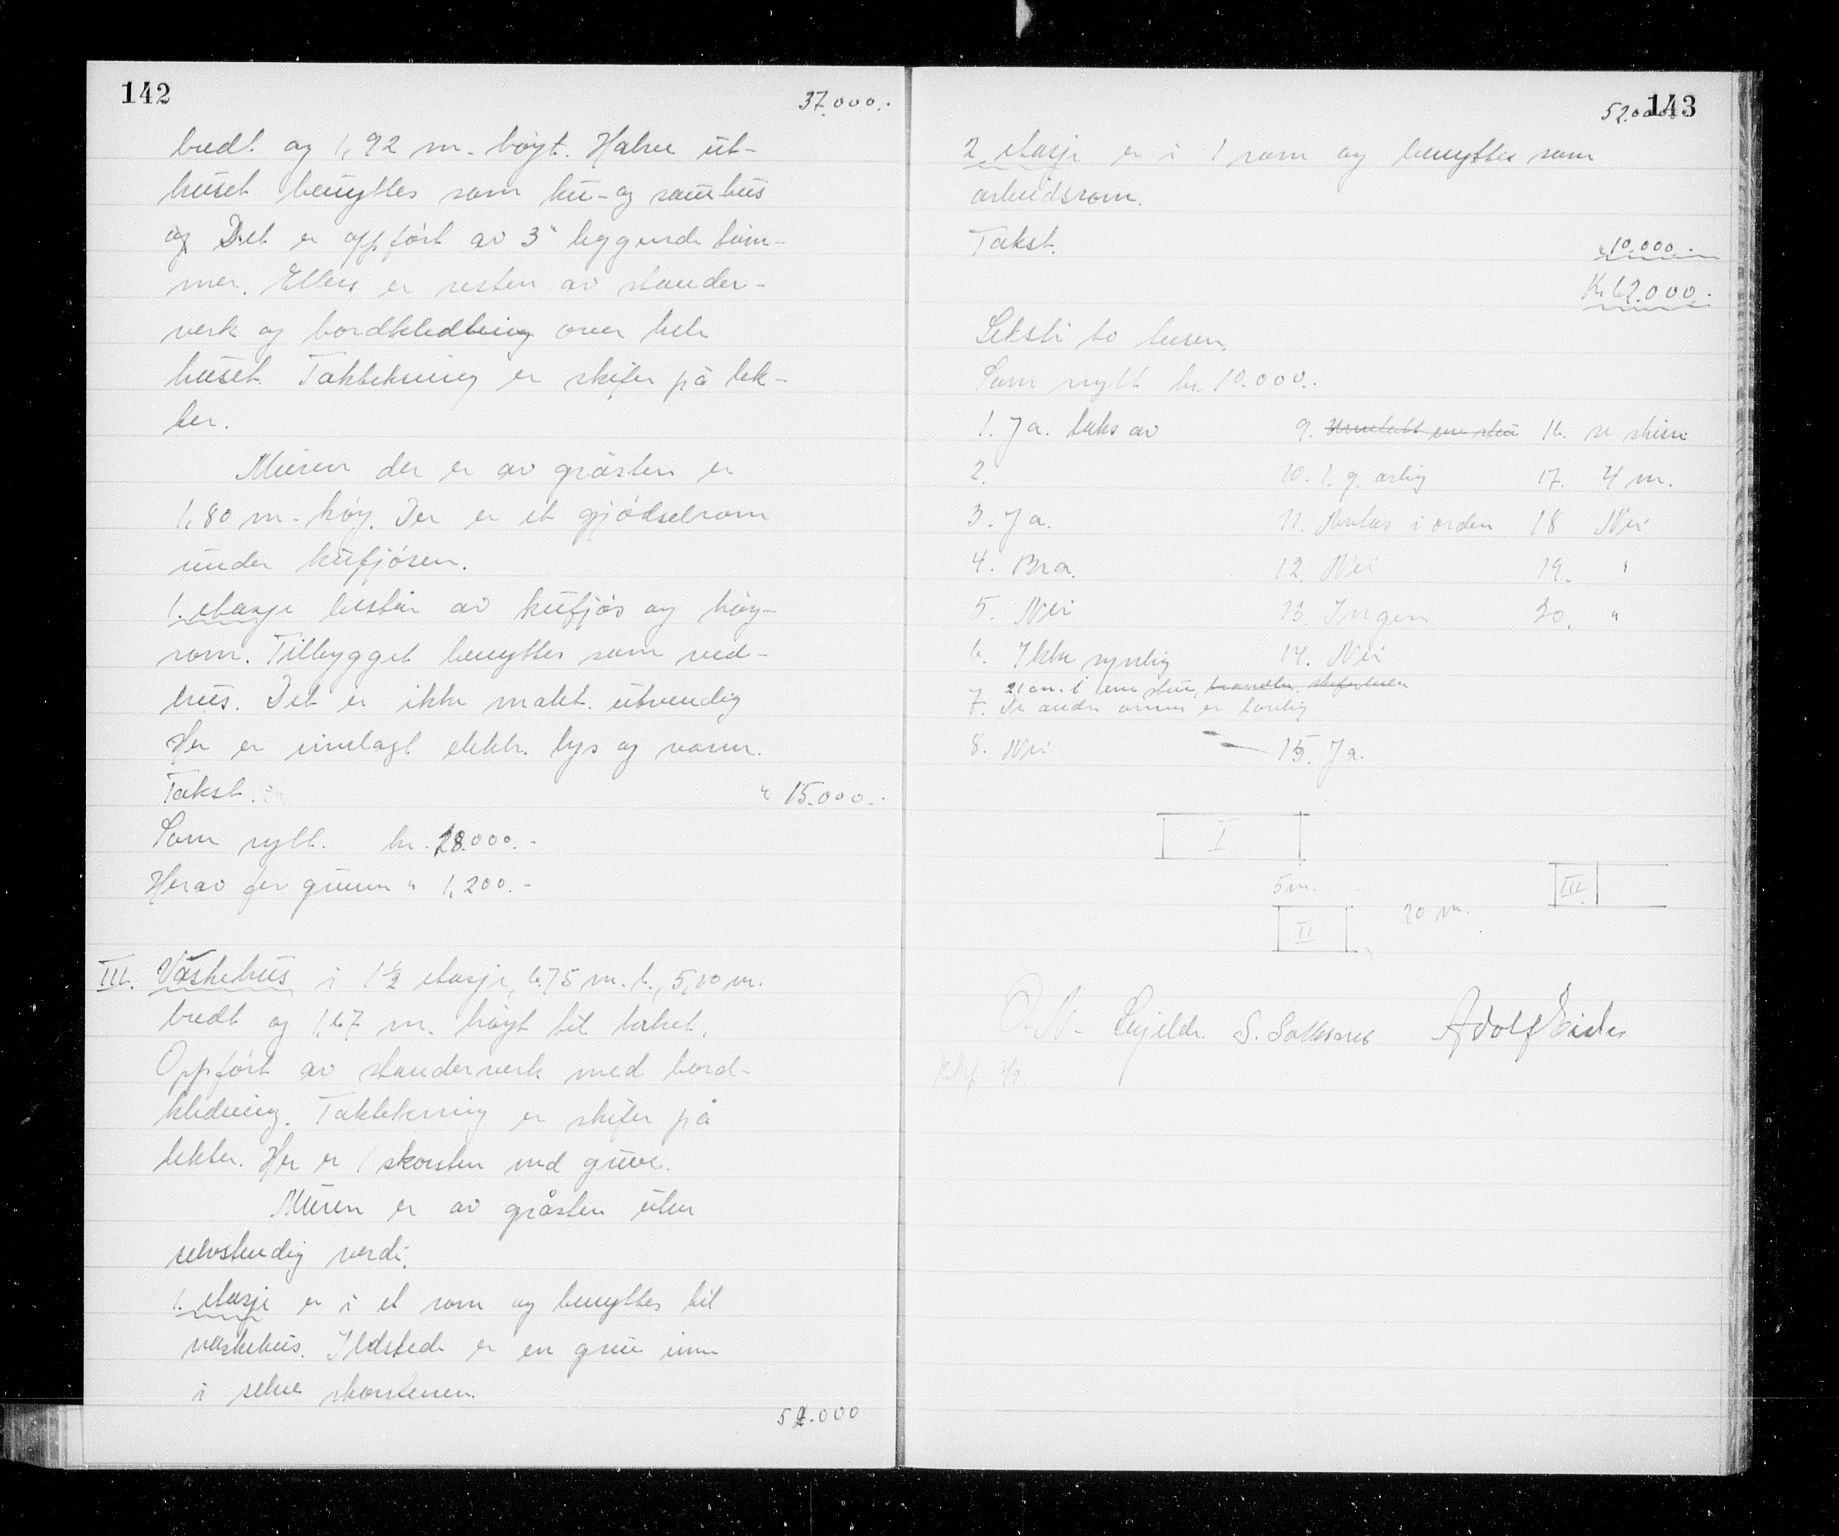 142
37.000.-
bredt og 1,92 m. høyt. Halve ut-
huset benyttes som ku- og sauehus
og Det er oppført av 3" liggende tøm-
mer. Ellers er resten av stander-
verk og bordkledning over hele
huset. Taktekning er skifer på lek-
ter.
Muren der er av gråsten er
1,80 m. høy. Der er et gjødselrom
under kufjøsen.
1. etasje består av kufjøs og høy-
rom. Tilbygget benyttes som ved-
hus. Det er ikke malt utvendig
Her er innlagt elektr. lys og vann.
Takst. " 15.000.-
Som nytt. kr. 28.000.-
Herav for grunn " 1,200.-
III. Vaskehus i 1 1/2 etasje, 6.75 m. l., 5,00 m.
bredt og 1,67 m. høyt til taket.
Oppført av standerverk med bord-
kledning. Taktekning er skifer på
lekter. Her er 1 skorsten med grue.
Muren er av gråsten uten
selvstendig verdi.
1. etasje er i et rom og benyttes til
vaskehus. Ildstede er en grue inne
i selve skorstenen.
52.000
143
52.000
2 etasje er i 1 rom og benyttes som
arbeidsrom.
Takst. " 10.000.-
Kr 62.000.-
Seksti to tusen.
Som nytt kr 10.000.-
1. Ja. taks av 9. 16. se skisse
2. 10. 1. g. årlig 17. 4 m.
3. Ja. 11. Antas i orden 18 Nei
4. Bra. 12. Nei 19. "
5. Nei 13. Ingen 20. "
6. Ikke synlig 14. Nei
21 cm. i ene stue,
7. De andre ovner er lovlig
8. Nei 15. Ja.
I
5 m.
III
20 m.
II
S. Solksnes Adolf Eides